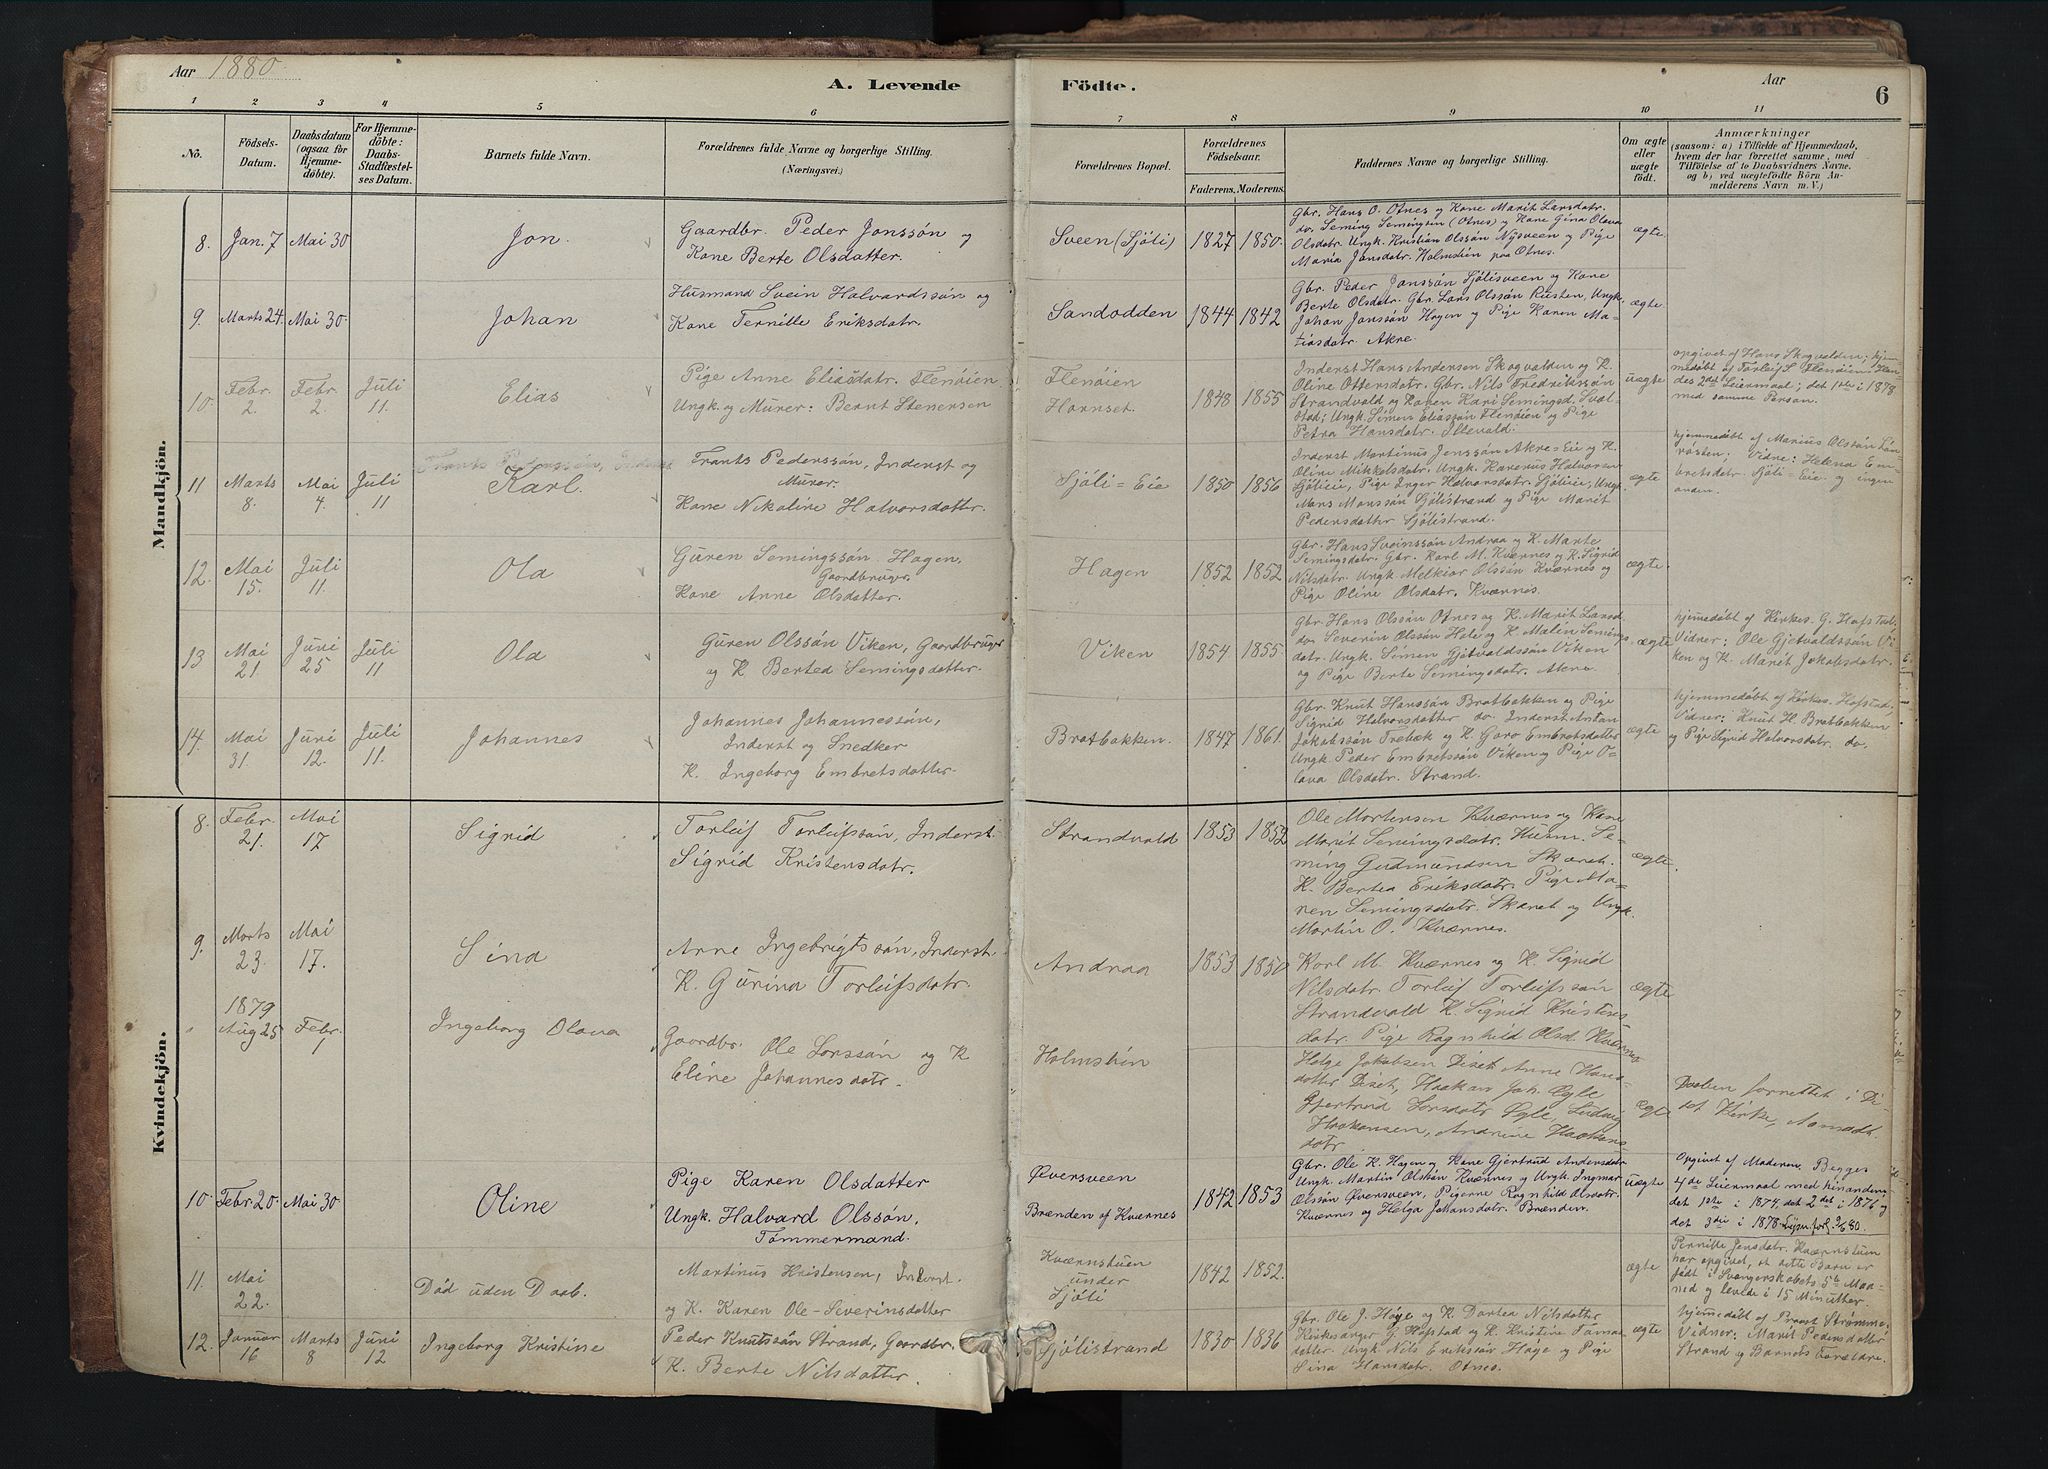 Aar 1880
A. Levende Födte.
Aar
6
1 2 3 4 5 6 7 8 9 10 11
No.
Födsels-
Datum.
Daabsdatum
(ogsaa for
Hjemme-
döbte).
For Hjemme-
döbte:
Daabs-
Stadfæstel-
ses Datum.
Barnets fulde Navn.
Forældrenes fulde Navne og borgerlige Stilling.
(Næringsvei.)
Forældrenes Bopæl.
Forældrenes
Födselsaar.
Faderens. Moderens.
Faddernes Navne og borgerlige Stilling.
Om ægte
eller
uægte
födt.
Anmærkninger
(saasom: a) i Tilfælde af Hjemmedaab,
hvem der har forrettet samme, med
Tilföielse af to Daabsvidners Navne,
og b) ved uægtefödte Börn An-
melderens Navn m. V.)
Mandkjön.
8. Jan. 7 Mai 30
Jon.
Gaardbr. Peder Jonssön og
Kone Berte Olsdatter.
Sveen (Sjöli) 1827 1850.
Gbr. Hans O. Otnes og Kone Marit Larsdatr.
do. Seming Semingsen (Otnes) og Kone Gina Olava
Olsdatr. Ungk. Kristian Olssön Nysveen og Pige
Maria Jonsdatr. Holmstien paa Otnes.
ægte
9. Marts 24. Mai 30.
Johan
Husmand Svein Halvardssön og
Kone Pernille Eriksdatr.
Sandodden 1844 1842
Gbr. Peder Jonssön Sjölisveen og Kone
Berte Olsdatr. Gbr. Lars Olssön Rusten, Ungk.
Johan Jonssön Hagen og Pige Karen Ma-
tiasdatr. Akre.
ægte
10. Febr. 2. Febr. 2 Juli 11.
Elias
Pige Anne Eliasdatr. Flenöien
Ungk. og Murer: Bernt Stenersen
Flenöien
Hornset. 1848 1855
Inderst Hans Andersen Skogvalden og K.
Oline Ottersdatr. Gbr. Nils Fredrikssön
Strandvold og Konen Kari Semingsd. Sval
stad; Ungk. Simen Eliassön Flenöien og Pige
Petra Hansdatr. Sltevold.
uægte
opgivet af Hans Skogvalden; hjem
medöbt af Torleif S Flenöien, Han
des 2det Leiermaal; det 1ste i 1878
med samme Person.
11 Marts 8. Mai 4. Juli 11
Karl.
Frants Pederssön, Inderst og
Murer.
Kone Nikoline Halvorsdatter.
Sjöli-Eie 1850 1856
Inderst Martinus Jenssön Akre-Eie og K.
Oline Mikkelsdatr. Ungk. Karenus Halvorsen
Sjölieie, Pige Inger Halvorsdatr. Sjölieie, Ungk.
Mons Monssön Sjölistrand og Pige Marit
Pedersdatter Sjölistrand.
ægte
hjemmedöbt af Marius Olssön
Vidne: Helena Em-
bretsdatr. Sjöli-Eie og ingen
anden.
12. Mai 15. Juli 11.
Ola
Guren Semingssön Hagen,
Gaardbruger
Kone Anne Olsdatter.
Hagen 1852 1852
Gbr. Hans Sveinssön Andraa og K. Marte
Semingsdatr. Gbr. Karl M. Kværnes og K. Sigrid
Nilsdatr. Ungk. Melkior Olssön Kværnes og
Pige Oline Olsdatr. Kværnes.
ægte
13 Mai 21. Juni 25 Juli 11
Ola
Guren Olssön Viken, Gaardbruger
og K. Berted Semingsdatter.
Viken 1854 1855.
Gbr. Hans Olssön Otnes og K. Marit Larsd.
do. Severin Olssön Hole og K. Malin Semings
datr. Ungk. Simen Gjetvaldssön Viken
og Pige Berte Semingsdatr. Akre.
ægte
hjemedöbt af Kirkes. G. Hofstad,
Vidner: Ole Gjetvaldssön Vi-
ken og K. Marit Jakobsdatr.
14. Mai 31. Juni 12. Juli 11.
Johannes
Johannes Johannessön,
Inderst og Snedker
K. Ingeborg Embretsdatter.
Bratbakken. 1847 1861.
Gbr. Knut Hanssön Bratbakken og Pige
Sigrid Halvorsdatter do. Inderst Antan
Jakobssön Trebæk og K. Goro Embretsdatter
Ungk. Peder Embretssön Viken og Pige O-
lava Olsdatr. Strand.
ægte
hjemmedöbt af Kirkes. Hofstad,
Vidner: Knut H. Bratbakken
og Pige Sigrid Halvorsdatr. do.
Kvindekjön.
8. Febr. 21. Mai 17
Sigrid
Torleif Torleifssön, Inderst.
Sigrid Kristensdatr.
Strandvold 1853 1852
Ole Mortensen Kværnes og Kone
Marit Semingsdatr. Husm. Se-
ming Gudmundsen Skaret.
K. Bertea Eriksdatr. Pige Ma-
ren Semingsdatr. Skaret og Ungk.
Martin O. Kværnes.
ægte
9. Marts 23. Mai 17.
Sina
Arne Ingebrigtssön, Inderst.
K. Gurina Torleifsdatr.
Andraa 1853 1850
Karl M. Kværnes og K. Sigrid
Nilsdatr. Torleif Torleifssön
Strandvold K. Sigrid Kristens
datr. Pige Ragnhild Olsd. Kværnes
ægte
" 1879 Aug 25 Febr. 1
Ingeborg Olava
Gaardbr. Ole Larssön og K
Eline Johannesdatr.
Holmstien
Helge Jakobsen Diset Anne Hans-
datter Diset, Haakan Joh. Øgle
Gjertrud Larsdatr Øgle, Ludvig
Haakansen, Andrine Haakens
datr.
ægte
Daaben forrettet i Di-
set Kirke, Aamodt.
10. Febr 20. Mai 30.
Oline
Pige Karen Olsdatter
Ungk. Halvard Olssön,
Tömmermand.
Øversveen
Brænden af Kværnes 1842 1853
Gbr. Ole K. Hagen og Kone Gjertrud Andersdatr.
Ungk. Martin Olssön Kværnes og Ungk. Ingmar
Olssön Øversveen, Pigerne Ragnhild Olsdatr.
Kværnes og Helga Johansdatr. Brænden.
uægte
Opgivet af Moderen. Begges
4de Leiermaal med hinanden;
det 1ste i 1874, det 2det i 1876 og
det 3die i 1878
11. Mai 22.
Död uden Daab.
Martinus Kristensen, Inderst.
og K. Karen Ole-Siverinsdatter
Kværnstuen
under
Sjöli 1842 1852.
ægte
Pernille Jensdatr. Kværnstuen
har opgivet, at dette Barn er
födt i Svangerskabets 5te Maa-
ned og levede i 15 Minutter.
12. Januar 16 Marts 8 Juni 12
Ingeborg Kristine
Peder Knutssön Strand, Gaardbr.
K. Berte Nilsdatter.
Sjölistrand 1830 1836
Gbr. Ole J. Höye og K. Dortea Nilsdatter
Kirkesanger G. Hofstad og K. Kristine Tönsa
datter. Ungk. Nils Erikssön Höye og Pige
Sina Hansdatr. Otnes.
ægte
hjemedöbt af Provst Strömme.
Vidner: Marit Pedersdatter
Strand og Barnets Forældre.